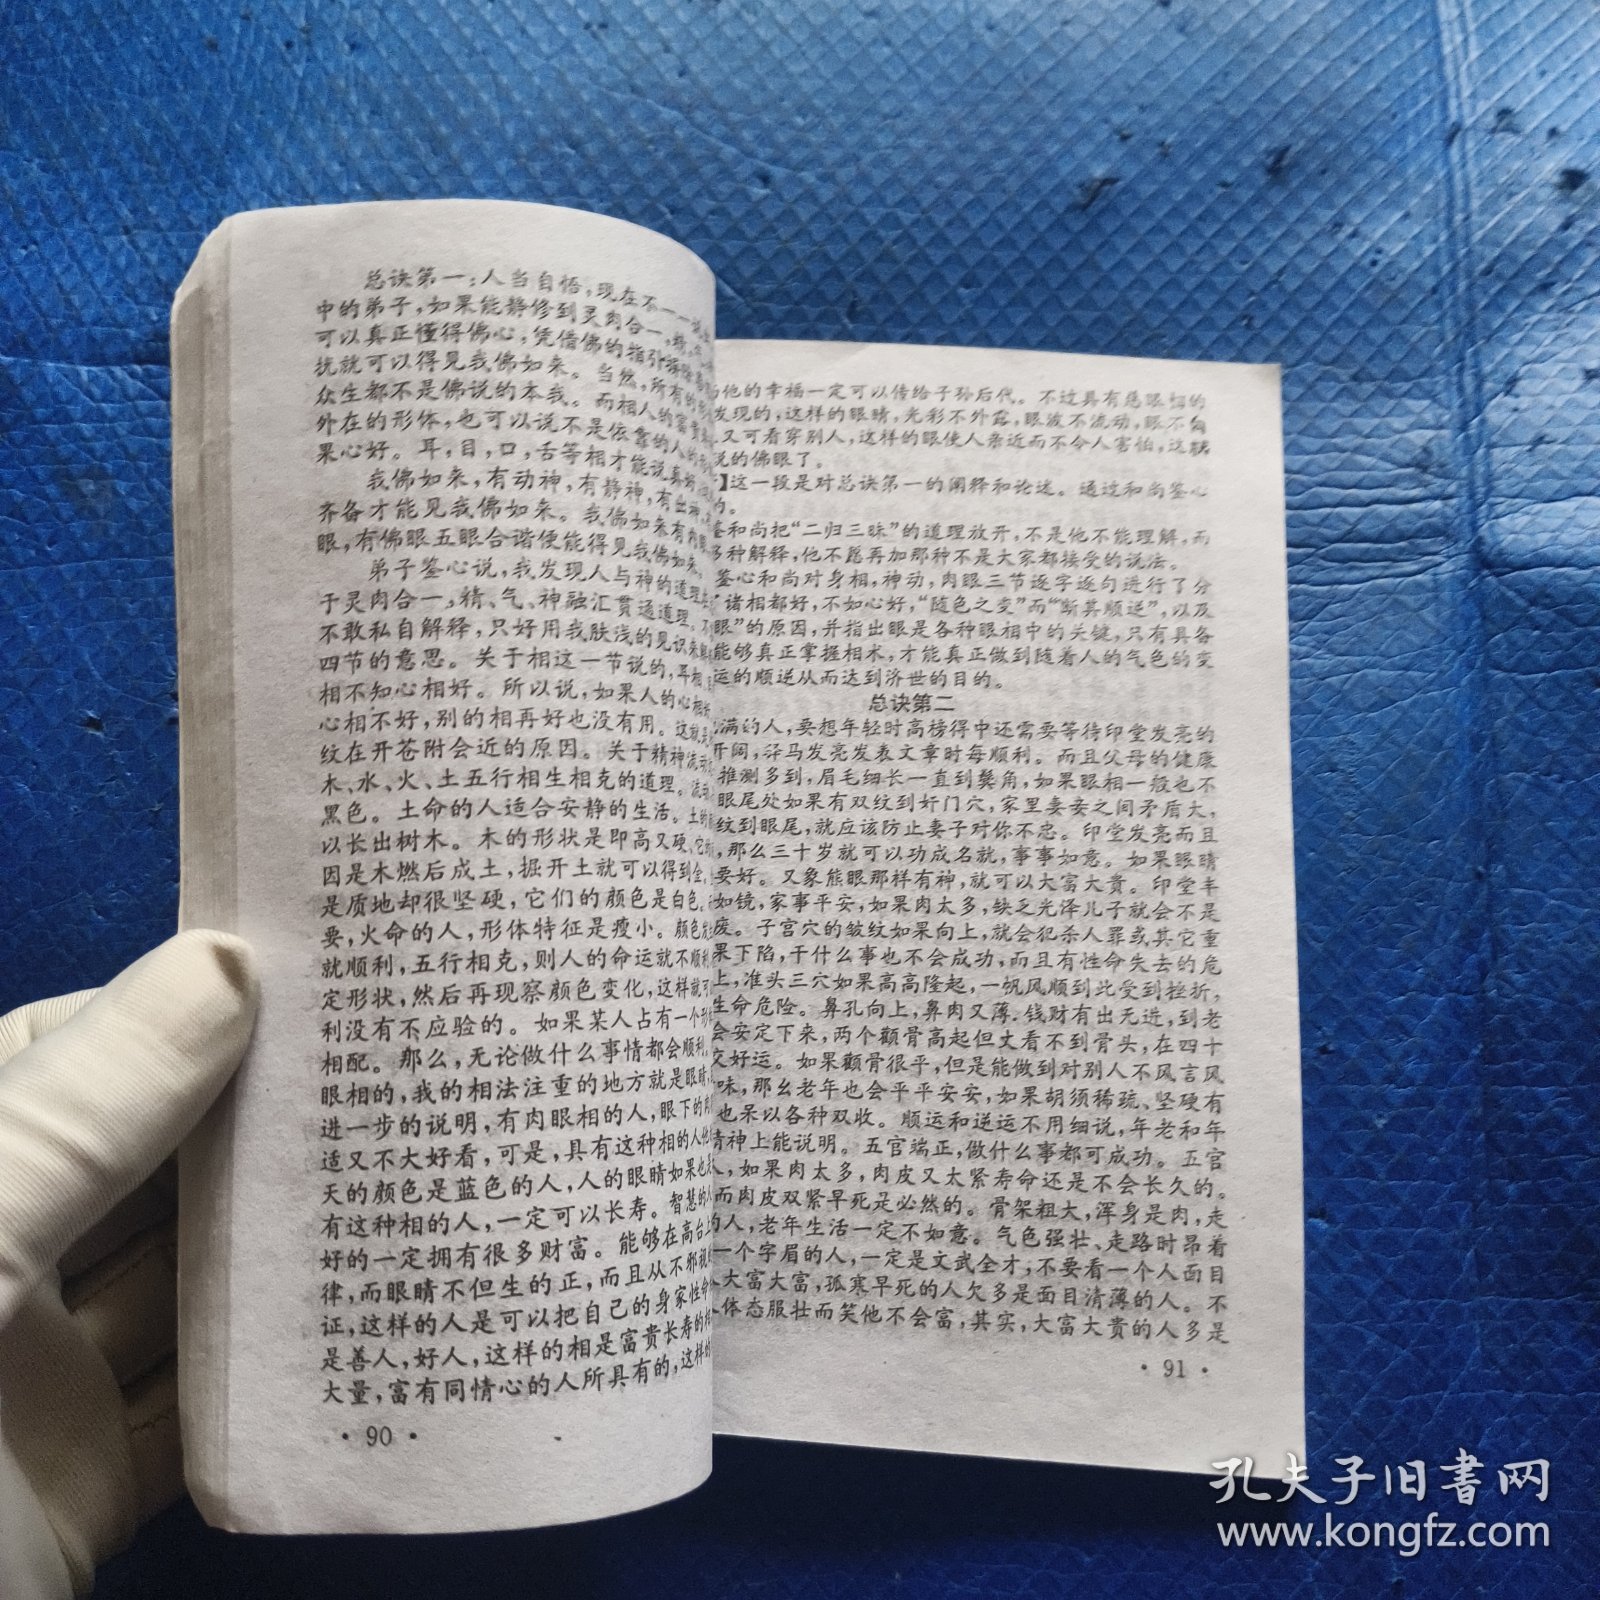 总诀第一:人当自悟,现在不一一
中的弟子,如果能静修到灵肉合一,
可以真正懂得佛心,凭借佛的指引
扰就可以得见我佛如来。当然,所有的
众生都不是佛说的本我。而相人的富贵
外在的形体,也可以说不是依靠的人的
果心好。耳,目,口,舌等相才能说真
我佛如来,有动神,有静神,有出神,
齐备才能见我佛如来。我佛如来有肉
眼,有佛眼五眼合谐便能得见我佛如来。
弟子鉴心说,我发现人与神的道理,
于灵肉合一,精、气、神融汇贯通道理。不
不敢私自解释,只好用我肤浅的见识来解
四节的意思。关于相这一节说的,耳相、
相不知心相好。所以说,如果人的心相
心相不好,别的相再好也没有用。这就是
纹在开苍附会近的原因。关于精神流动
木、水、火、土五行相生相克的道理。流动
黑色。土命的人适合安静的生活。土的
以长出树木。木的形状是即高又硬,它
因是木燃后成土,掘开土就可以得到金,
是质地却很坚硬,它们的颜色是白色。
要,火命的人,形体特征是瘦小。颜色发
就顺利,五行相克,则人的命运就不顺利
定形状,然后再现察颜色变化,这样就可
利没有不应验的。如果某人占有一个形
相配。那么,无论做什么事情都会顺利。
眼相的,我的相法注重的地方就是眼睛,
进一步的说明,有肉眼相的人,眼下的肉
适又不大好看,可是,具有这种相的人他
天的颜色是蓝色的人,人的眼睛如果也是
有这种相的人,一定可以长寿。智慧的人
好的一定拥有很多财富。能够在高台上
律,而眼睛不但生的正,而且从不邪视
证,这样的人是可以把自己的身家性命
是善人,好人,这样的相是富贵长寿的相
大量,富有同情心的人所具有的,这样的
·90·
他的幸福一定可以传给子孙后代。不过具有慈眼相的
发现的,这样的眼睛,光彩不外露,眼波不流动,眼不匈
又可看穿别人,这样的眼使人亲近而不令人害怕,这就
说的佛眼了。
】这一段是对总诀第一的阐释和论述。通过和尚鉴心
的。
鉴和尚把“二归三昧”的道理放开,不是他不能理解,而
多种解释,他不愿再加那种不是大家都接受的说法。
鉴心和尚对身相,神动,肉眼三节逐字逐句进行了分
诸相都好,不如心好,“随色之变”而“断其顺逆”,以及
眼”的原因,并指出眼是各种眼相中的关键,只有具备
能够真正掌握相术,才能真正做到随着人的气色的变
运的顺逆从而达到济世的目的。
总诀第二
满的人,要想年轻时高榜得中还需要等待印堂发亮的
开阔,驿马发亮发表文章时每顺利。而且父母的健康
推测多到,眉毛细长一直到鬓角,如果眼相一般也不
眼尾处如果有双纹到奸门穴,家里妻妾之间矛盾大,
纹到眼尾,就应该防止妻子对你不忠。印堂发亮而且
,那么三十岁就可以功成名就,事事如意。如果眼睛
要好。又象熊眼那样有神,就可以大富大贵。印堂丰
如镜,家事平安,如果肉太多,缺乏光泽儿子就会不是
废。子宫穴的皱纹如果向上,就会犯杀人罪或其它重
果下陷,干什么事也不会成功,而且有性命失去的危
上,准头三穴如果高高隆起,一帆风顺到此受到挫折,
生命危险。鼻孔向上,鼻肉又薄.钱财有出无进,到老
会安定下来,两个颧骨高起但丈看不到骨头,在四十
交好运。如果颧骨很平,但是能做到对别人不风言风
味,那幺老年也会平平安安,如果胡须稀疏、坚硬有
也呆以各种双收。顺运和逆运不用细说,年老和年
精神上能说明。五官端正,做什么事都可成功。五官
,如果肉太多,肉皮又太紧寿命还是不会长久的。
而肉皮双紧早死是必然的。骨架粗大,浑身是肉,走
的人,老年生活一定不如意。气色强壮、走路时昂着
一个字眉的人,一定是文武全才;不要看一个人面目
大富大富,孤寒早死的人欠多是面目清薄的人。不
体态服壮而笑他不会富,其实,大富大贵的人多是
·91·
孔夫子旧书网
www.kongfz.com